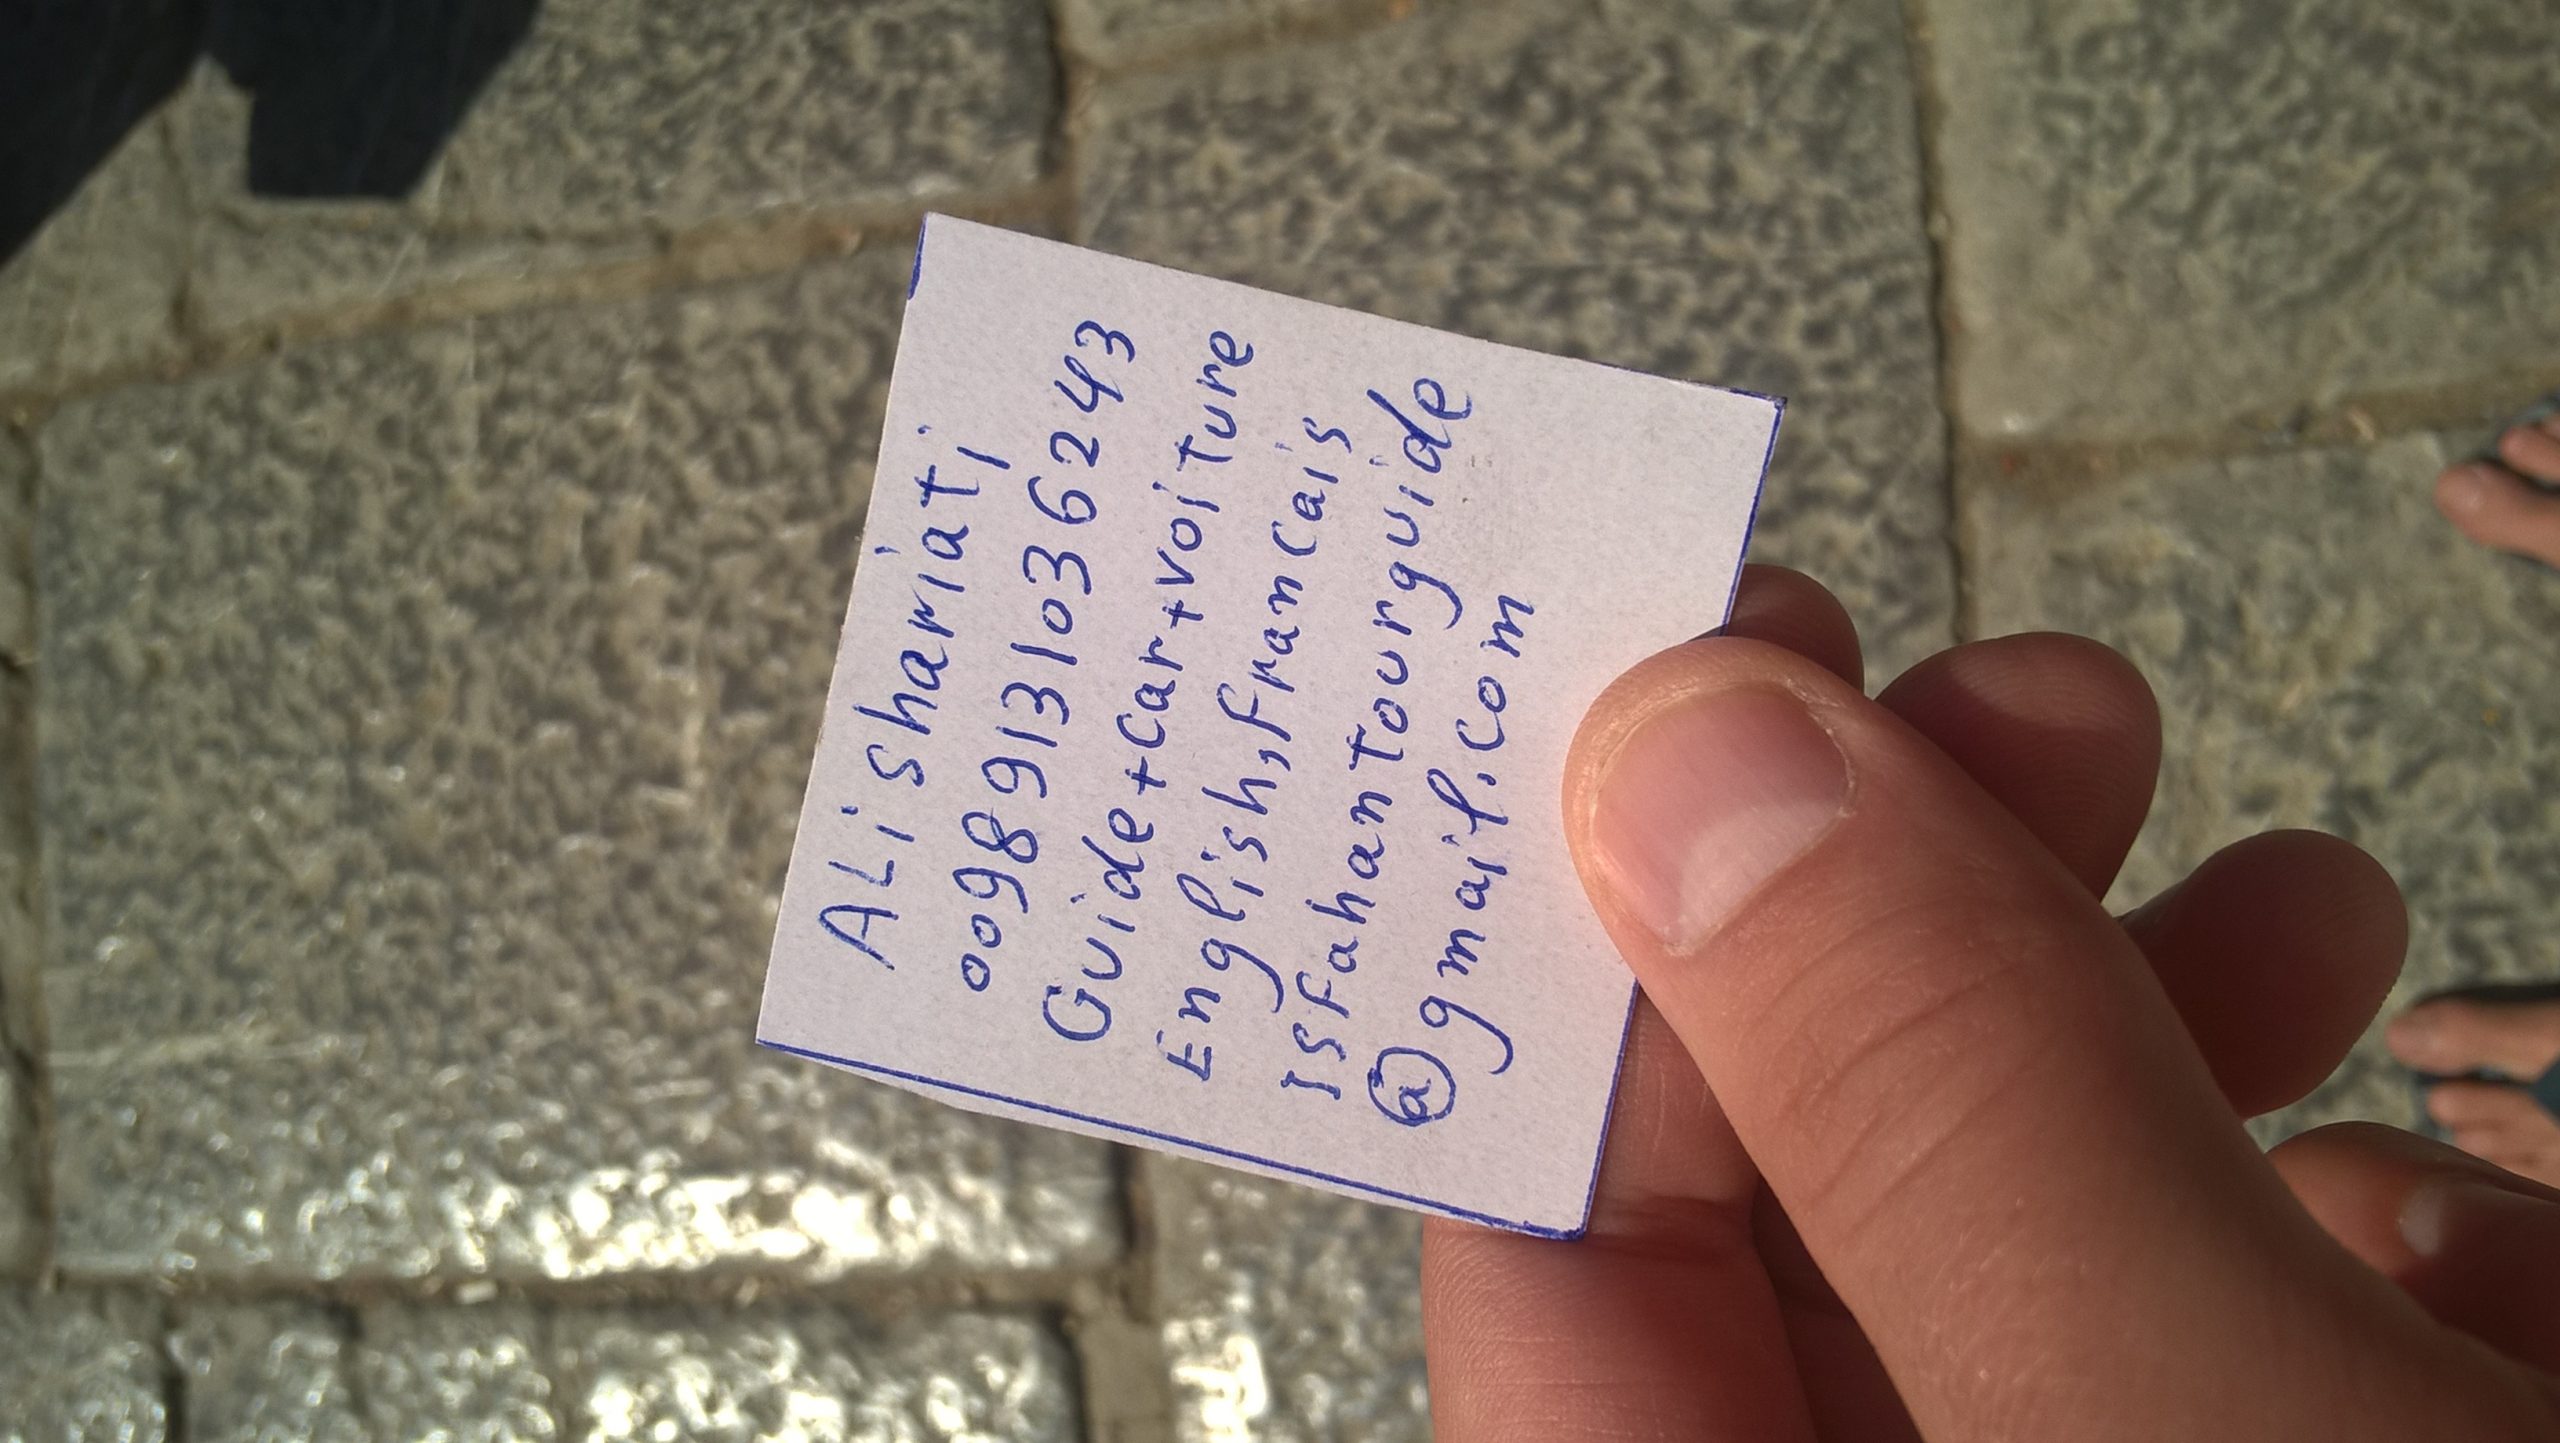 ALi shariati
00989131036243
Guide+car+voiture
English,francais
Isfahantourguide
@gmail.com